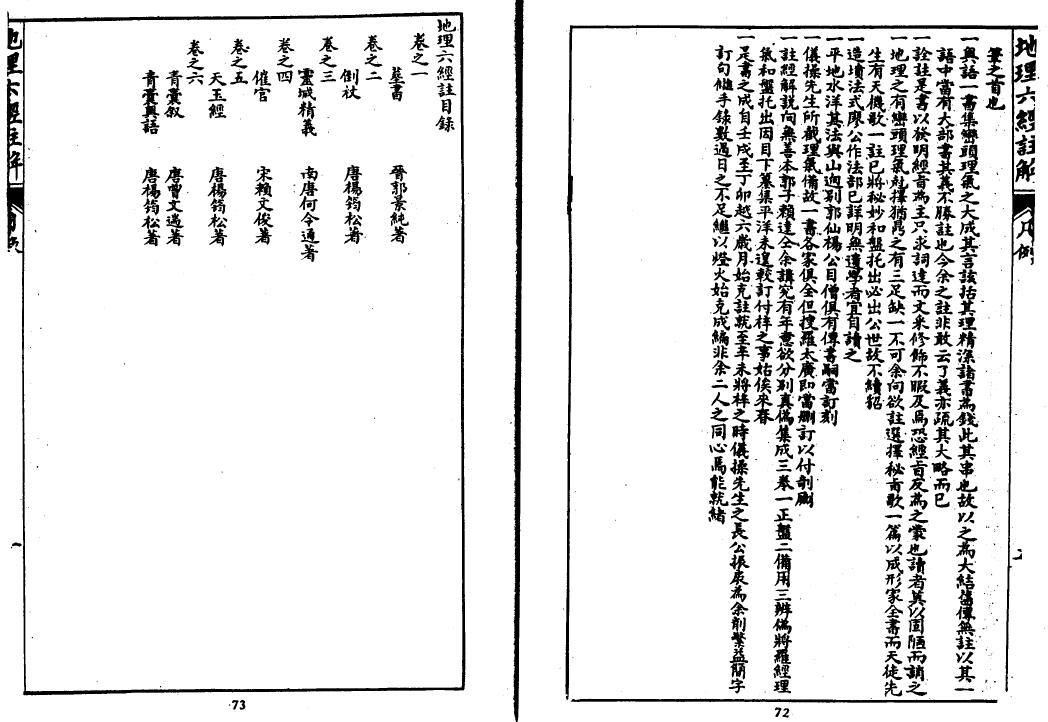 地理六經註解
凡例
筆之首也
一奧語一書集巒頭理氣之大成其言該括其理精深諸書為錢此其串也故以之為大結舊傳無註以其一
語中當有大部書其義不勝註也今余之註非敢云了義亦疏其大略而已
一詮註是書以發明經旨為主只求詞達而文采修飾不暇及焉恐經旨反為之蒙也讀者冀以固陋而誚之
一地理之有巒頭理氣尅擇猶鼎之有三足缺一不可余向欲註選擇秘旨歌一篇以成形家全書而天徒先
生有天機歌一註已將秘妙和盤托出必出公世故不續貂
一造塋法式廖公作法部已詳明無遺學者宜自讀之
一平地水洋其法與山迥別郭仙楊公目僧俱有傳書嗣當訂刻
一儀操先生所截理氣備故一書各家俱全但搜羅太廣即當刪訂以付剞劂
一註經解說向無善本郭子賴達仝余講究有年意欲分別真偽集成三卷一正盤二備用三辨偽將羅經理
氣和盤托出因目下纂集平洋未遑較訂付梓之事姑俟來春
一是書之成自壬戌至丁卯越六歲月始克註就至辛未將梓之時儀操先生之長公振宸為余削繁益簡字
訂句讎手錄數過日之不足繼以燈火始克成編非余二人之同心焉能就緒
72
地理六經註目錄
卷之一
葬書 晉郭景純著
卷之二
倒杖 唐楊筠松著
卷之三
靈城精義 南唐何令通著
卷之四
催官 宋賴文俊著
卷之五
天玉經 唐楊筠松著
卷之六
青囊叙 唐曾文遄著
青囊奧語 唐楊筠松著
地理六經註解
目錄
一
73